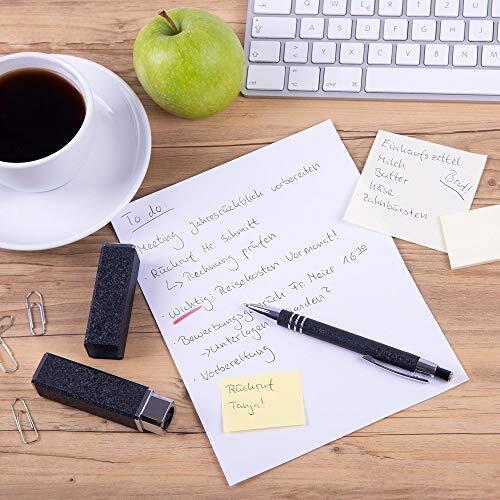 To do:
Meeting Jahresrückblick vorbereiten
· Rückruf Hr. Schmitt
↳ Rechnung prüfen
· Wichtig: Reisekosten Vormonat!
· Bewerbungsgespräch Fr. Meier 16³⁰
→ Unterlagen vorhanden?
· Vorbereitung
Rückruf
Tanja!
Einkaufszettel
Milch
Butter
Käse
Zahnbürsten
Brot!